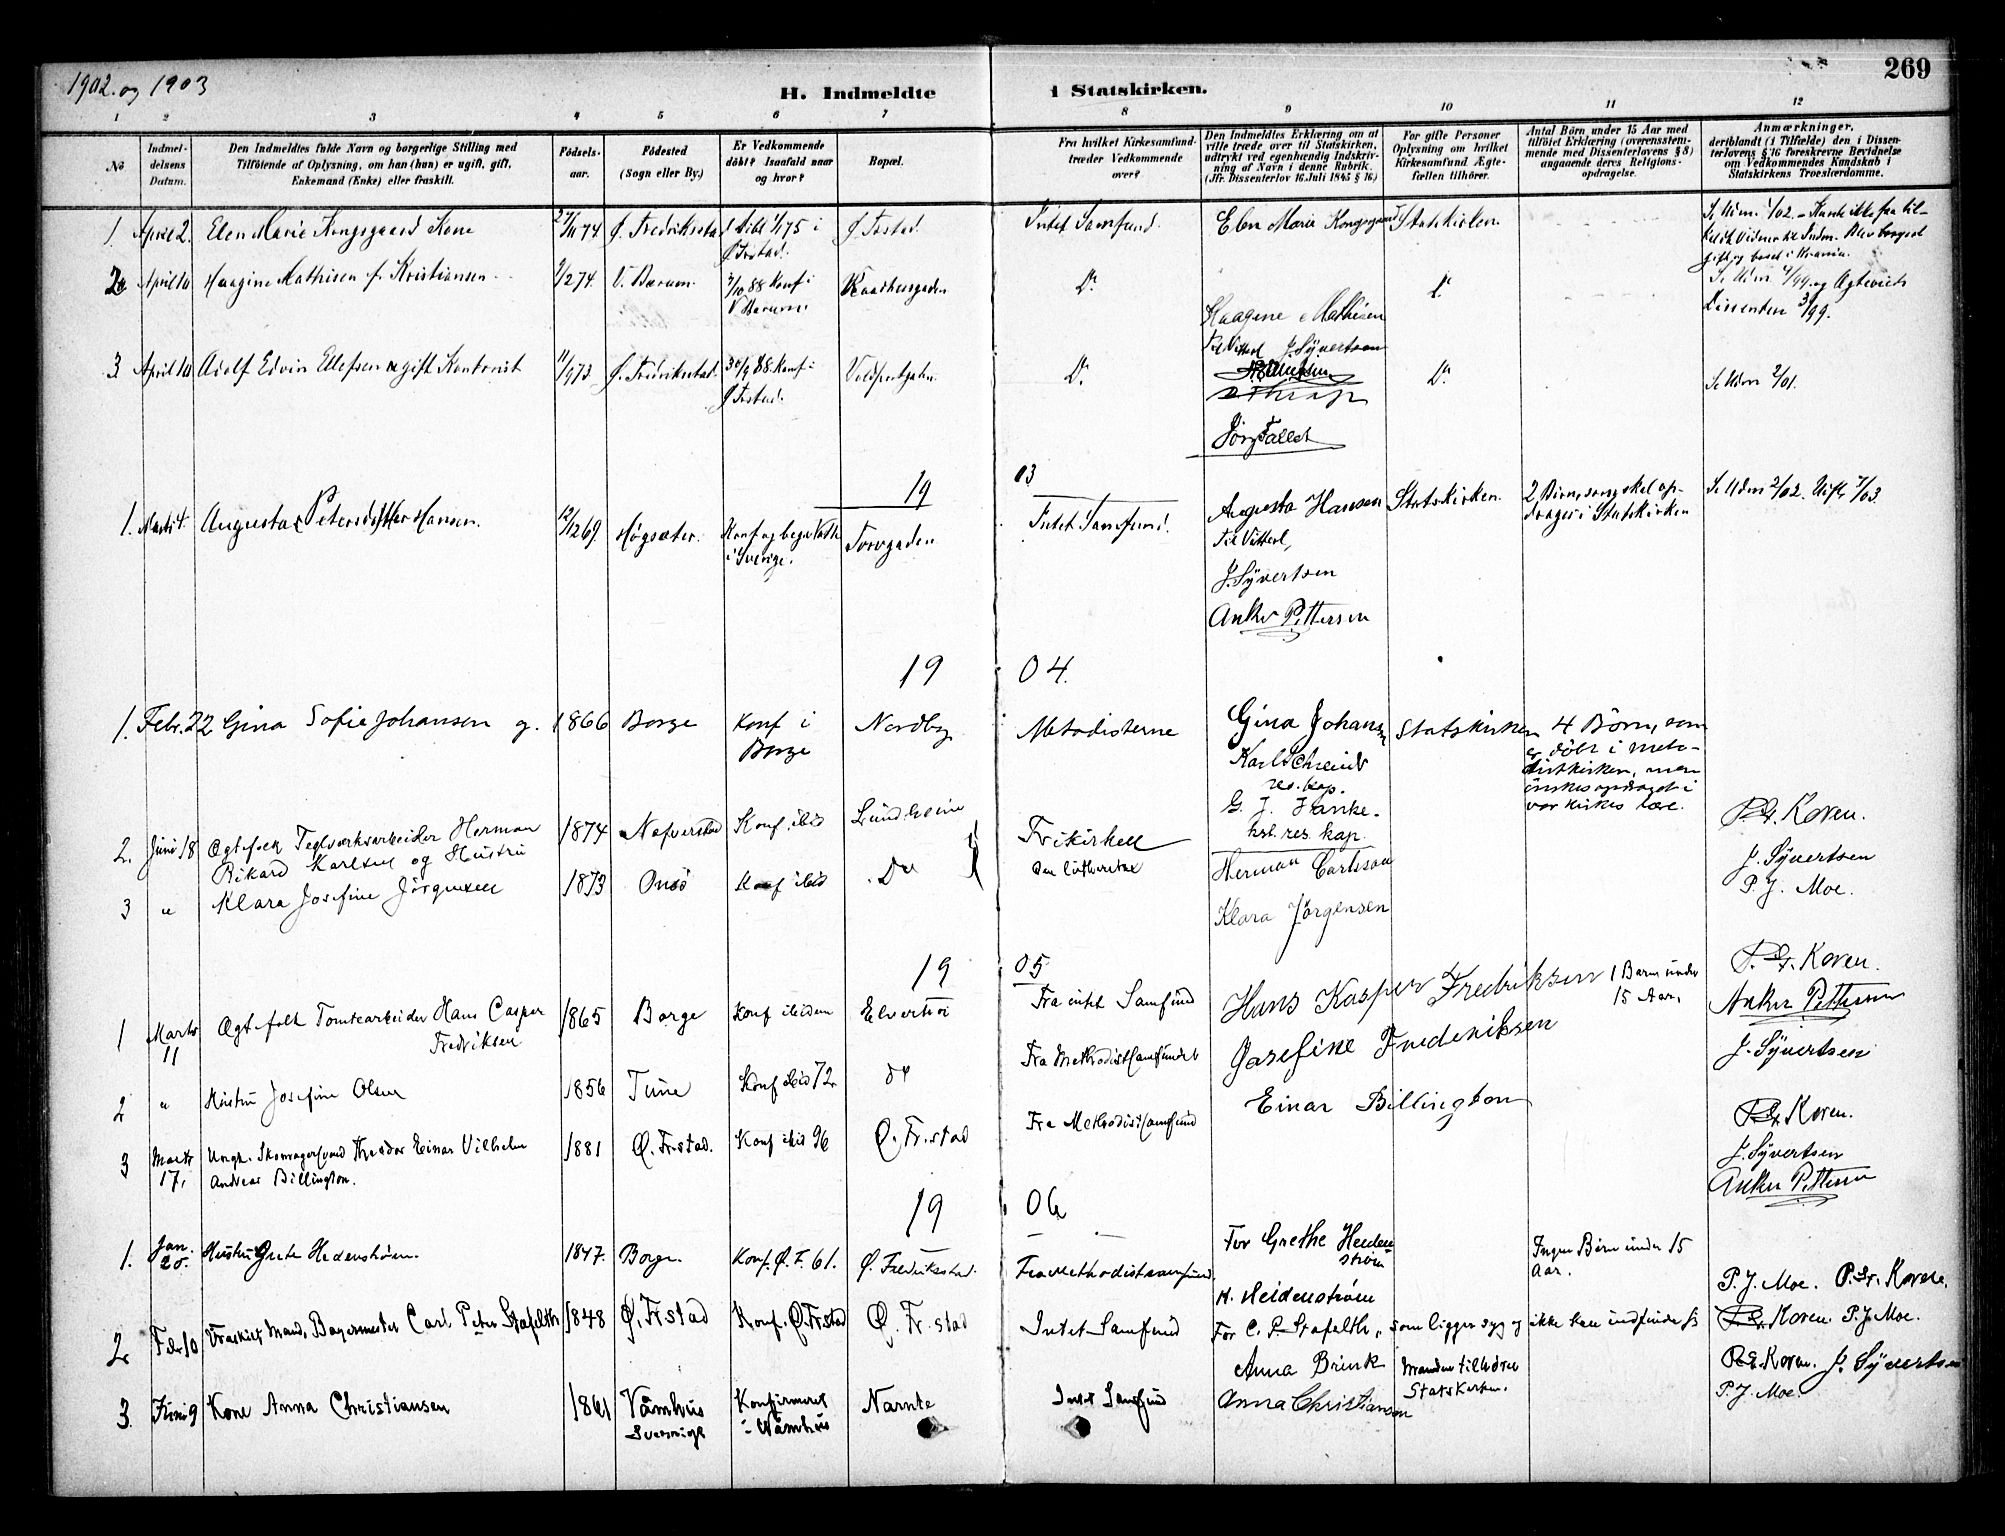 1902. og 1903
269
H. Indmeldte i Statskirken.
1 2 3 4 5 6 7 8 9 10 11 12
No
Indmel-
delsens
Datum.
Den Indmeldtes fulde Navn og borgerlige Stilling med
Tilföiende af Oplysning, om han (hun) er ugift, gift,
Enkemand (Enke) eller fraskilt.
Födsels-
aar.
Födested
(Sogn eller By.)
Er Vedkommende
döbt? Isaafald naar
og hvor?
Bopæl.
Fra hvilket Kirkesamfund
træder Vedkommende
over?
Den Indmeldtes Erklæring om at
ville træde over til Statskirken,
udtrykt ved egenhændig Indskriv-
ning af Navn i denne Rubrik.
(Jfr. Dissenterlov 16 Juli 1845 § 16)
For gifte Personer
Oplysning om hvilket
Kirkesamfund Ægte-
fællen tilhörer.
Antal Börn under 15 Aar med
tilföiet Erklæring (overensstem-
mende med Dissenterlovens § 8)
angaaende deres Religions-
opdragelse.
Anmærkninger,
deriblandt (i Tilfælde) den i Dissen-
terlovens § 16 foreskrevne Bevidnelse
om Vedkommendes Kundskab i
Statskirkens Troeslærdomme.
1. April 2. Elen Marie Kongsgaard Kone 27/11 74 Ø. Fredrikstad döbt 1/1 75 i Ø. Frstad. Ø. Frstad. Intet Samfund. Elen Marie Kongsgaard Statskirken.
2 April 10 Haagine Mathisen f. Kristiansen 9/2 74. V. Bærum. 2/10 88 Konf i V. Bærum. Raadhusgaden Do Haagine Mathisen Do
Til Vitterl. J. Syvertsen
Dissenter 3/99.
3 April 10 Adolf Edvin Ellefsen ugift Kontorist 11/9 73 Ø. Fredrikstad. 30/9 88 Konf i Ø Frstad. Voldportgaden. Do Do Se Udm 2/01.
1903
1. Marts 4. Augusta Petersdatter Hansen. 12/12 69. Högsæter. Konf i Sverige. Torvgaden Intet Samfund. Augusta Hansen Statskirken. 2 Börn, som skal op-
drages i Statskirken Se Udm 2/02.
Til Vitterl,
J. Syvertsen
Anker Pettersen
1904.
1. Febr. 22 Gina Sofie Johansen g. 1866 Borge Konf i Borge Nordby Metodisterne Gina Johansen Statskirken 4 Börn, som
er döbt i meto-
distkirken, men
önskes opdraget i
vor kirkes lære.
res. kap.
G. J. Hanke.
hst. res. kap.
2. Juni 18 Ægtefolk Teglværksarbeider Herman
Rikard Karlsen og Hustru 1874 Konf. ibid Lundheim Frikirken
den lutherske Herman Carlsson P. Koren.
J. Syvertsen
P. J. Moe.
3 " Klara Josefine Jörgensen 1873 Onsö Konf ibid Do Klara Jørgensen
1905
1 Marts 11 Ægtefolk Tomtearbeider Hans Casper
Fredriksen 1865 Borge Konf ibidem Fra intet Samfund Hans Kasper Fredriksen 1 Barn under
15 Aar. Koren.
Anker Pettersen
J. Syvertsen
2 " Hustru Josefine Olsen 1856 Tune Konf ibid 72 do Fra Methodistsamfundet Josefine Frederiksen
3 Marts 17, Ungk. Theodor Einar Vilhelm
Andreas Billington. 1881 Ø. Frstad. Konf ibid 96 Ø. Fr.stad Fra Methodistsamfund Einar Billington Koren.
J. Syvertsen
Anker Pettersen
1906
1. Jan. 20. Hustru Grete Hedenström. 1847. Borge. Konf. Ø. F. 61. Ø. Fredrikstad. Fra Methodistsamfund. For Grethe Heden
ström
H. Heidenström Ingen Börn under 15
Aar. P. J. Moe. Koren.
2 Febr 10 Fraskilt Mand, Bagermester Carl Peter Stafseth 1848 Ø. Fr.stad Konf. Ø. Frstad Ø. Fr.stad Intet Samfund For C. P. Stafseth, som ligger syg og ikke kan indfinde sig Koren. P. J. Moe.
Anna Brink
3. Juni 9 Kone Anna Christiansen 1861 Våmhus
Sverrige Konfirmeret
i Våmhus Narnte Intet Samfund Anna Christiansen Manden tilhörer
Statskirken. Koren. J. Syvertsen
P. J. Moe.